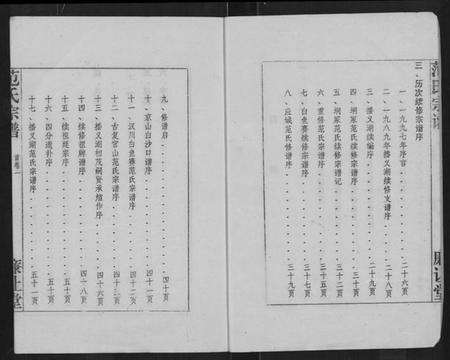 三、历次续修宗谱序
一、一九九七年序言..........二十六页
二、一九八九年搔义湖续修支谱序..........二十八页
三、搔义湖续编序..........二十九页
四、垌冢范氏续修宗谱序..........三十页
五、垌冢范氏续修宗谱记..........三十二页
六、重修范氏宗谱序..........三十五页
七、白鱼赛续修宗谱序..........三十七页
八、应城范氏续修宗谱序..........三十九页
九、修谱启..........四十页
十、京山白沙口谱序..........四十一页
十一、汉川白鱼赛范氏宗谱序..........四十二页
十二、古复官山范氏宗谱序..........四十三页
十三、搔义湖相茂嗣贤承植作序..........四十六页
十四、续修祖牌谱序..........四十八页
十五、续祖庭宗序..........五十页
十六、四分遗补序..........五十页
十七、搔义湖范氏宗谱序..........五十一页
范氏宗谱
首卷一
廉让堂